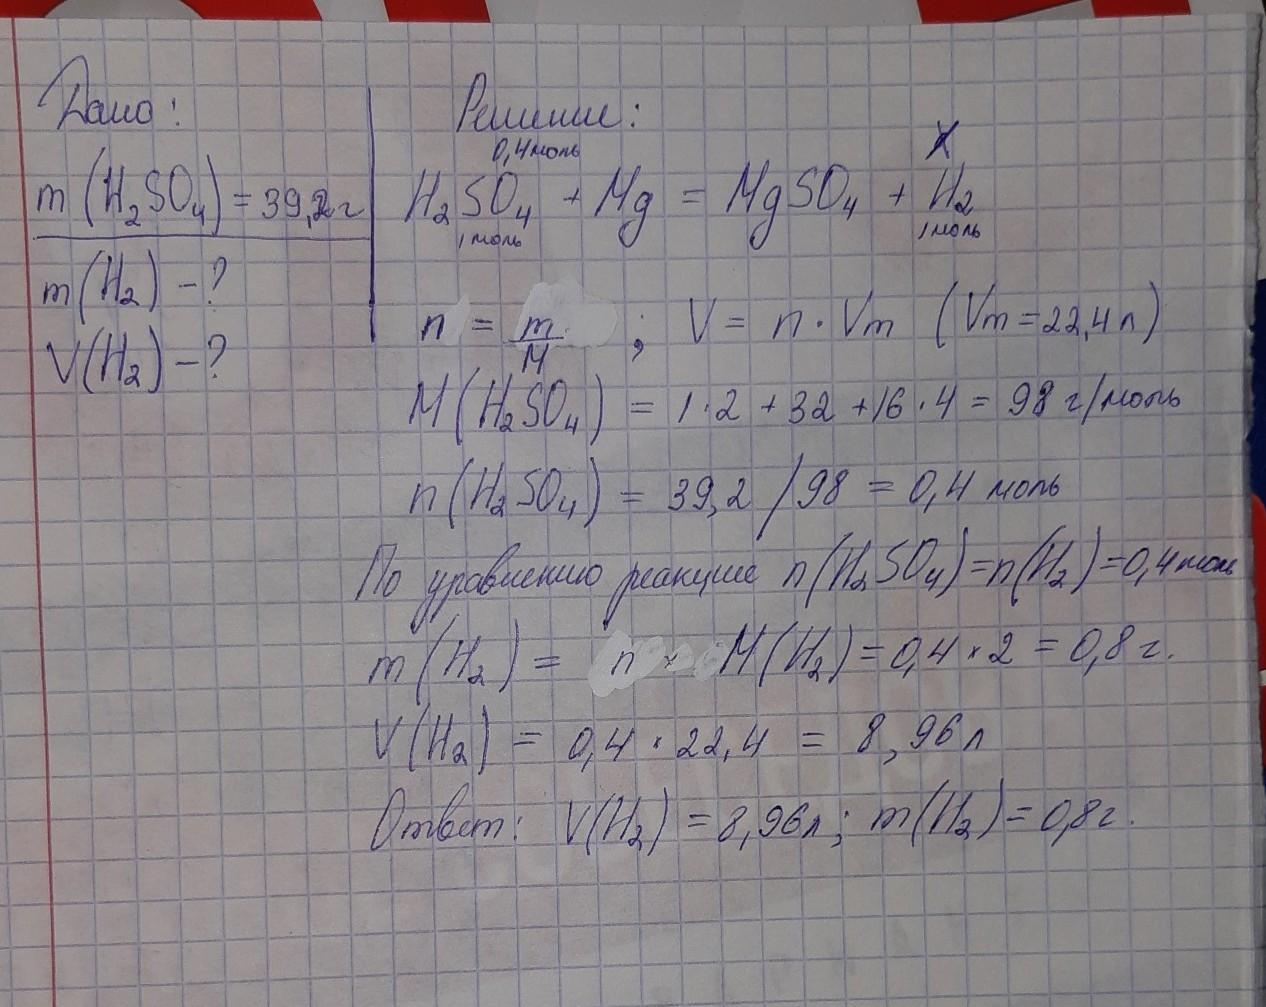 Дано:
m(H₂SO₄) = 39,2 г
m(H₂) – ?
V(H₂) – ?
Решение:
0,4 моль
X
H₂SO₄ + Mg = MgSO₄ + H₂
1 моль 1 моль
n = m/M ; V = n · Vm (Vm = 22,4 л)
M(H₂SO₄) = 1·2 + 32 + 16·4 = 98 г/моль
n(H₂SO₄) = 39,2 / 98 = 0,4 моль
По уравнению реакции n(H₂SO₄) = n(H₂) = 0,4 моль
m(H₂) = n × M(H₂) = 0,4 × 2 = 0,8 г.
V(H₂) = 0,4 · 22,4 = 8,96 л
Ответ: V(H₂) = 8,96 л; m(H₂) = 0,8 г.